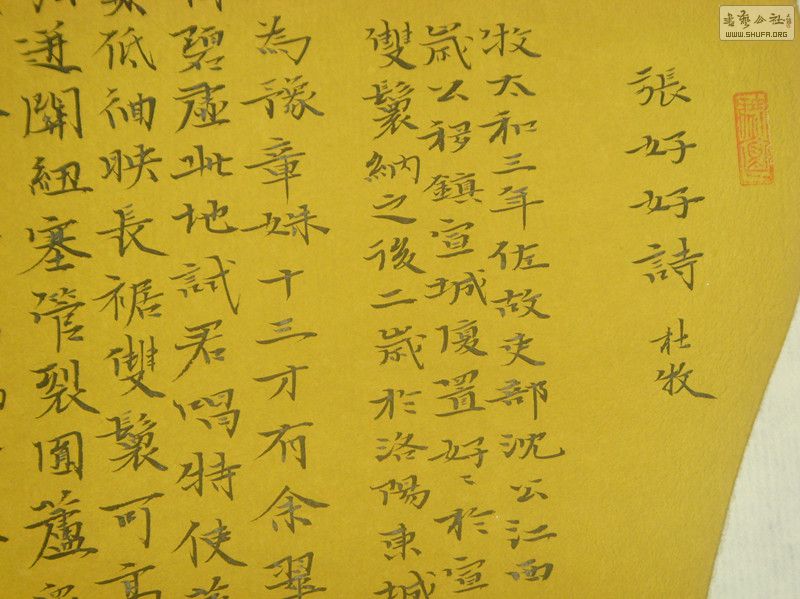 張好好詩 杜牧
牧太和三年佐故吏部沈公江西
歲公移鎮宣城復置好〻於宣
雙鬟納之後二歲於洛陽東城
為豫章姝十三才有余翠
碧虛此地試君唱特使
低袖映長裾雙鬟可高
迸關紐塞管裂圓蘆
書藝公社
WWW.SHUFA.ORG